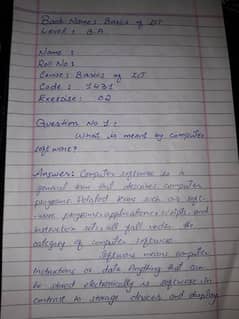 Book Name: Basics of ICT
Level: B.A
Name:
Roll No:
Course: Basics of ICT
Code: 1431
Exercise: 02
Question No 1:
What is meant by computer
software?
Answer: Computer software is a
general term that describes computer
programs. Related terms such as soft-
-ware programs, applications, scripts, and
instruction sets all fall under the
category of computer software.
Software means computer
instructions or data. Anything that can
be stored electronically is software in
contrast to storage devices and display